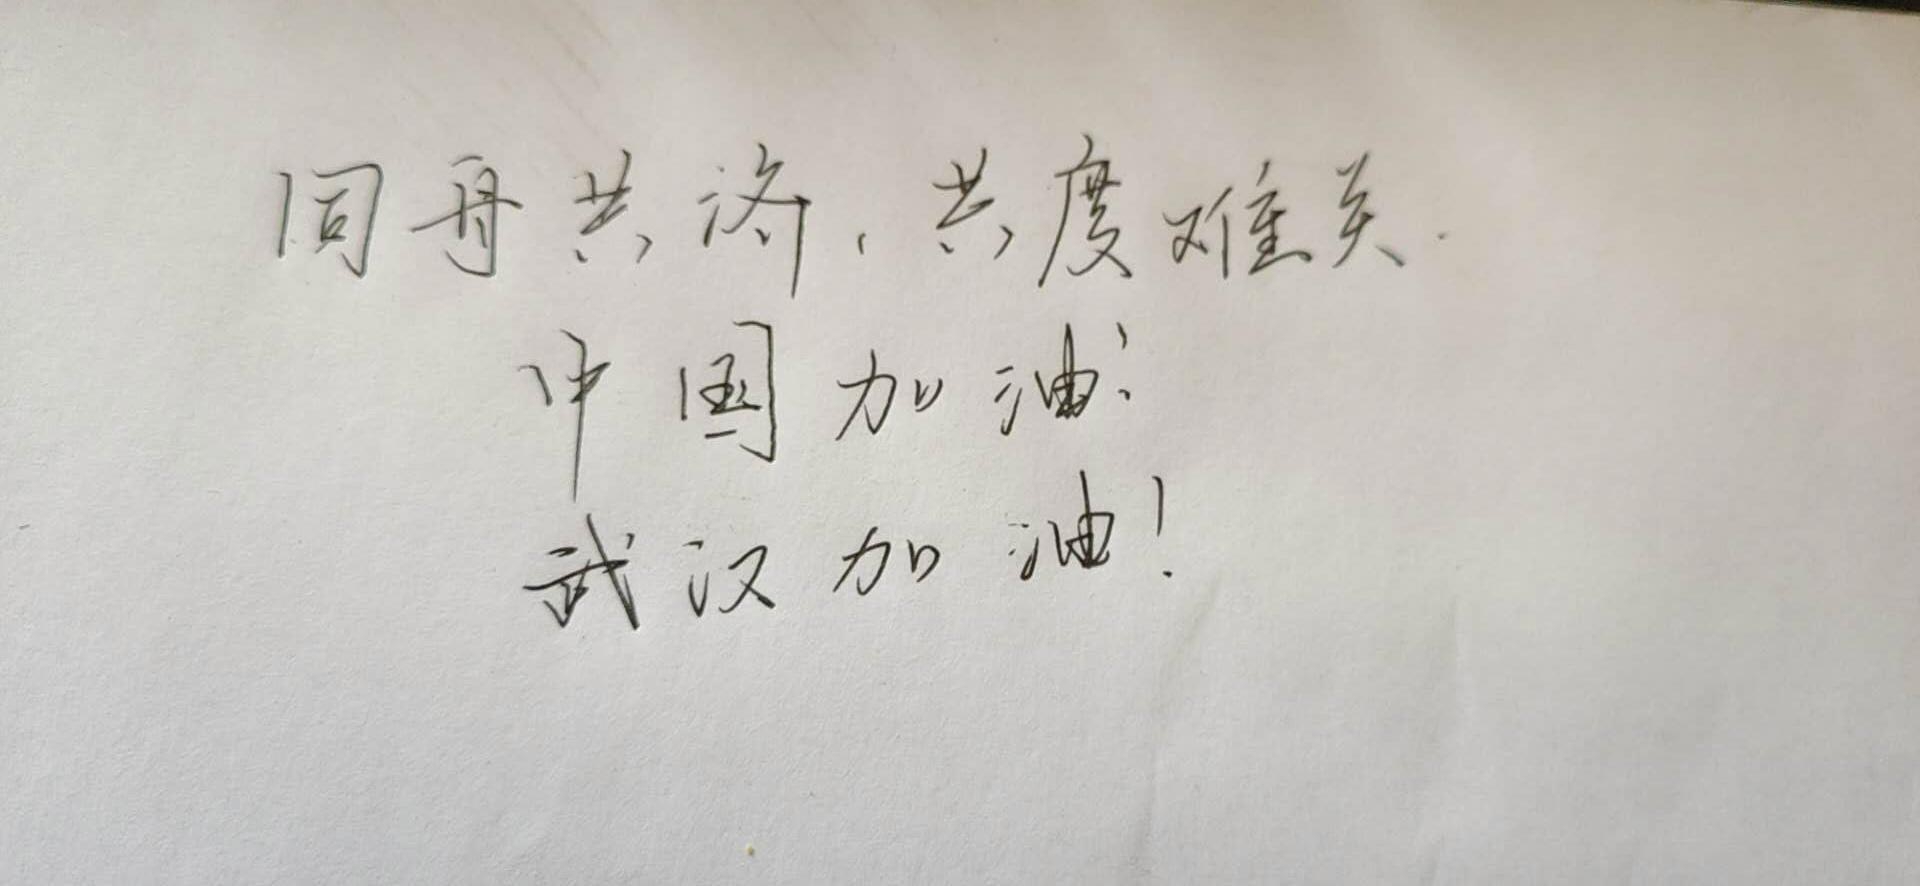 同舟共济，共度难关.
中国加油!
武汉加油!